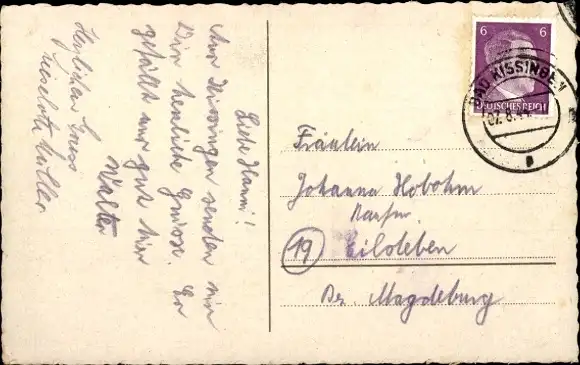 Liebe Hanni!
Aus Kissingen senden wir
Dir herzliche Grüsse. Es
gefällt uns gut hier
Walter
Herzlichen Gruss
6 6
DEUTSCHES REICH
BAD KISSINGEN
Fräulein
Johanna Hobohm
19 Eilsleben
Bez. Magdeburg